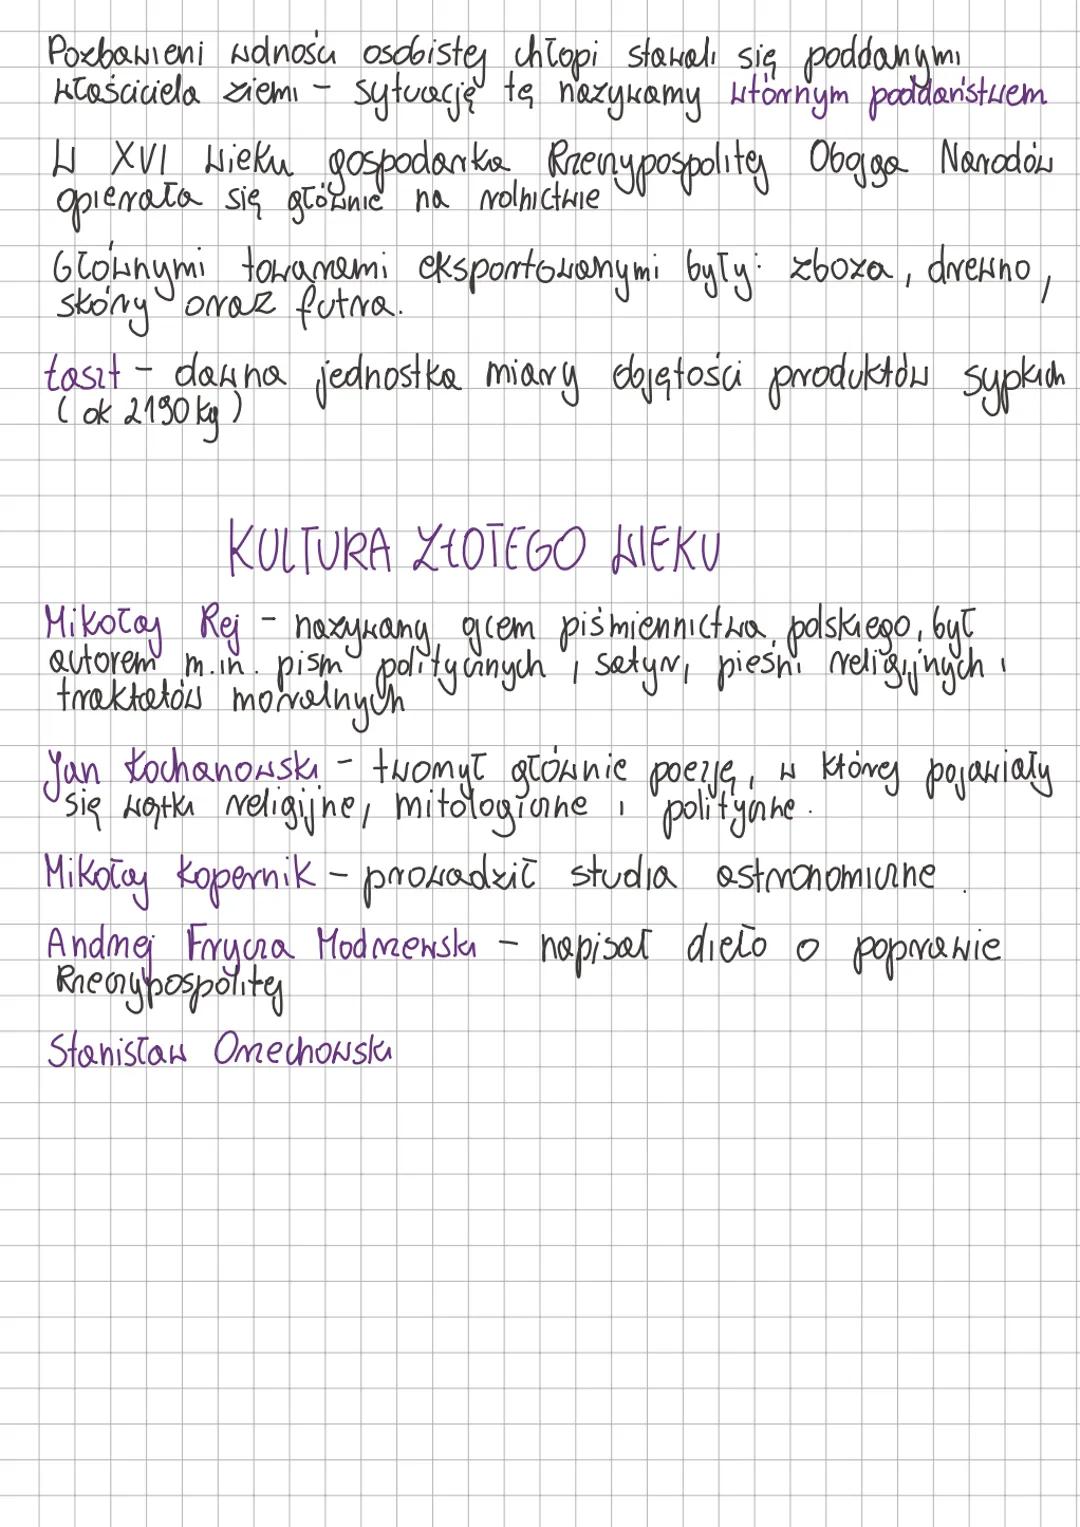 Pozbawieni wolności osobistej chłopi stawali się poddanymi
właściciela ziemi - sytuację tę nazywamy wtórnym poddaństwem
W XVI wieku gospodarka Rzeczypospolitej Obojga Narodów
opierała się głównie na rolnictwie
Głównymi towarami eksportowanymi były: zboża, drewno,
skóry oraz futra.
łaszt - dawna jednostka miary objętości produktów sypkich
(ok 2190 kg)
KULTURA ZŁOTEGO WIEKU
Mikołaj Rej - nazywany ojcem piśmiennictwa polskiego, był
autorem m.in. pism politycznych, satyr, pieśni religijnych i
traktatów moralnych
Jan Kochanowski - tworzył głównie poezję, w której pojawiały
się wątki religijne, mitologiczne i polityczne.
Mikołaj Kopernik - prowadził studia astronomiczne.
Andrzej Frycza Modrzewski - napisał dieło o poprawie
Rzeczypospolitej
Stanisław Orzechowski